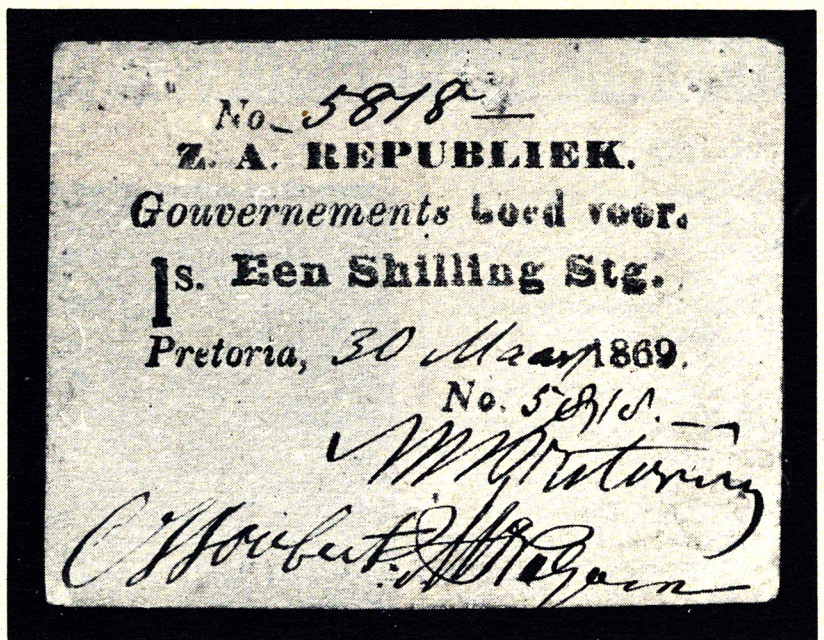 No. 5818
Z. A. REPUBLIEK.
Gouvernements Goed voor.
1s. Een Shilling Stg.
Pretoria, 30 Maart 1869.
No. 5818.
MWPretorius
Joubert